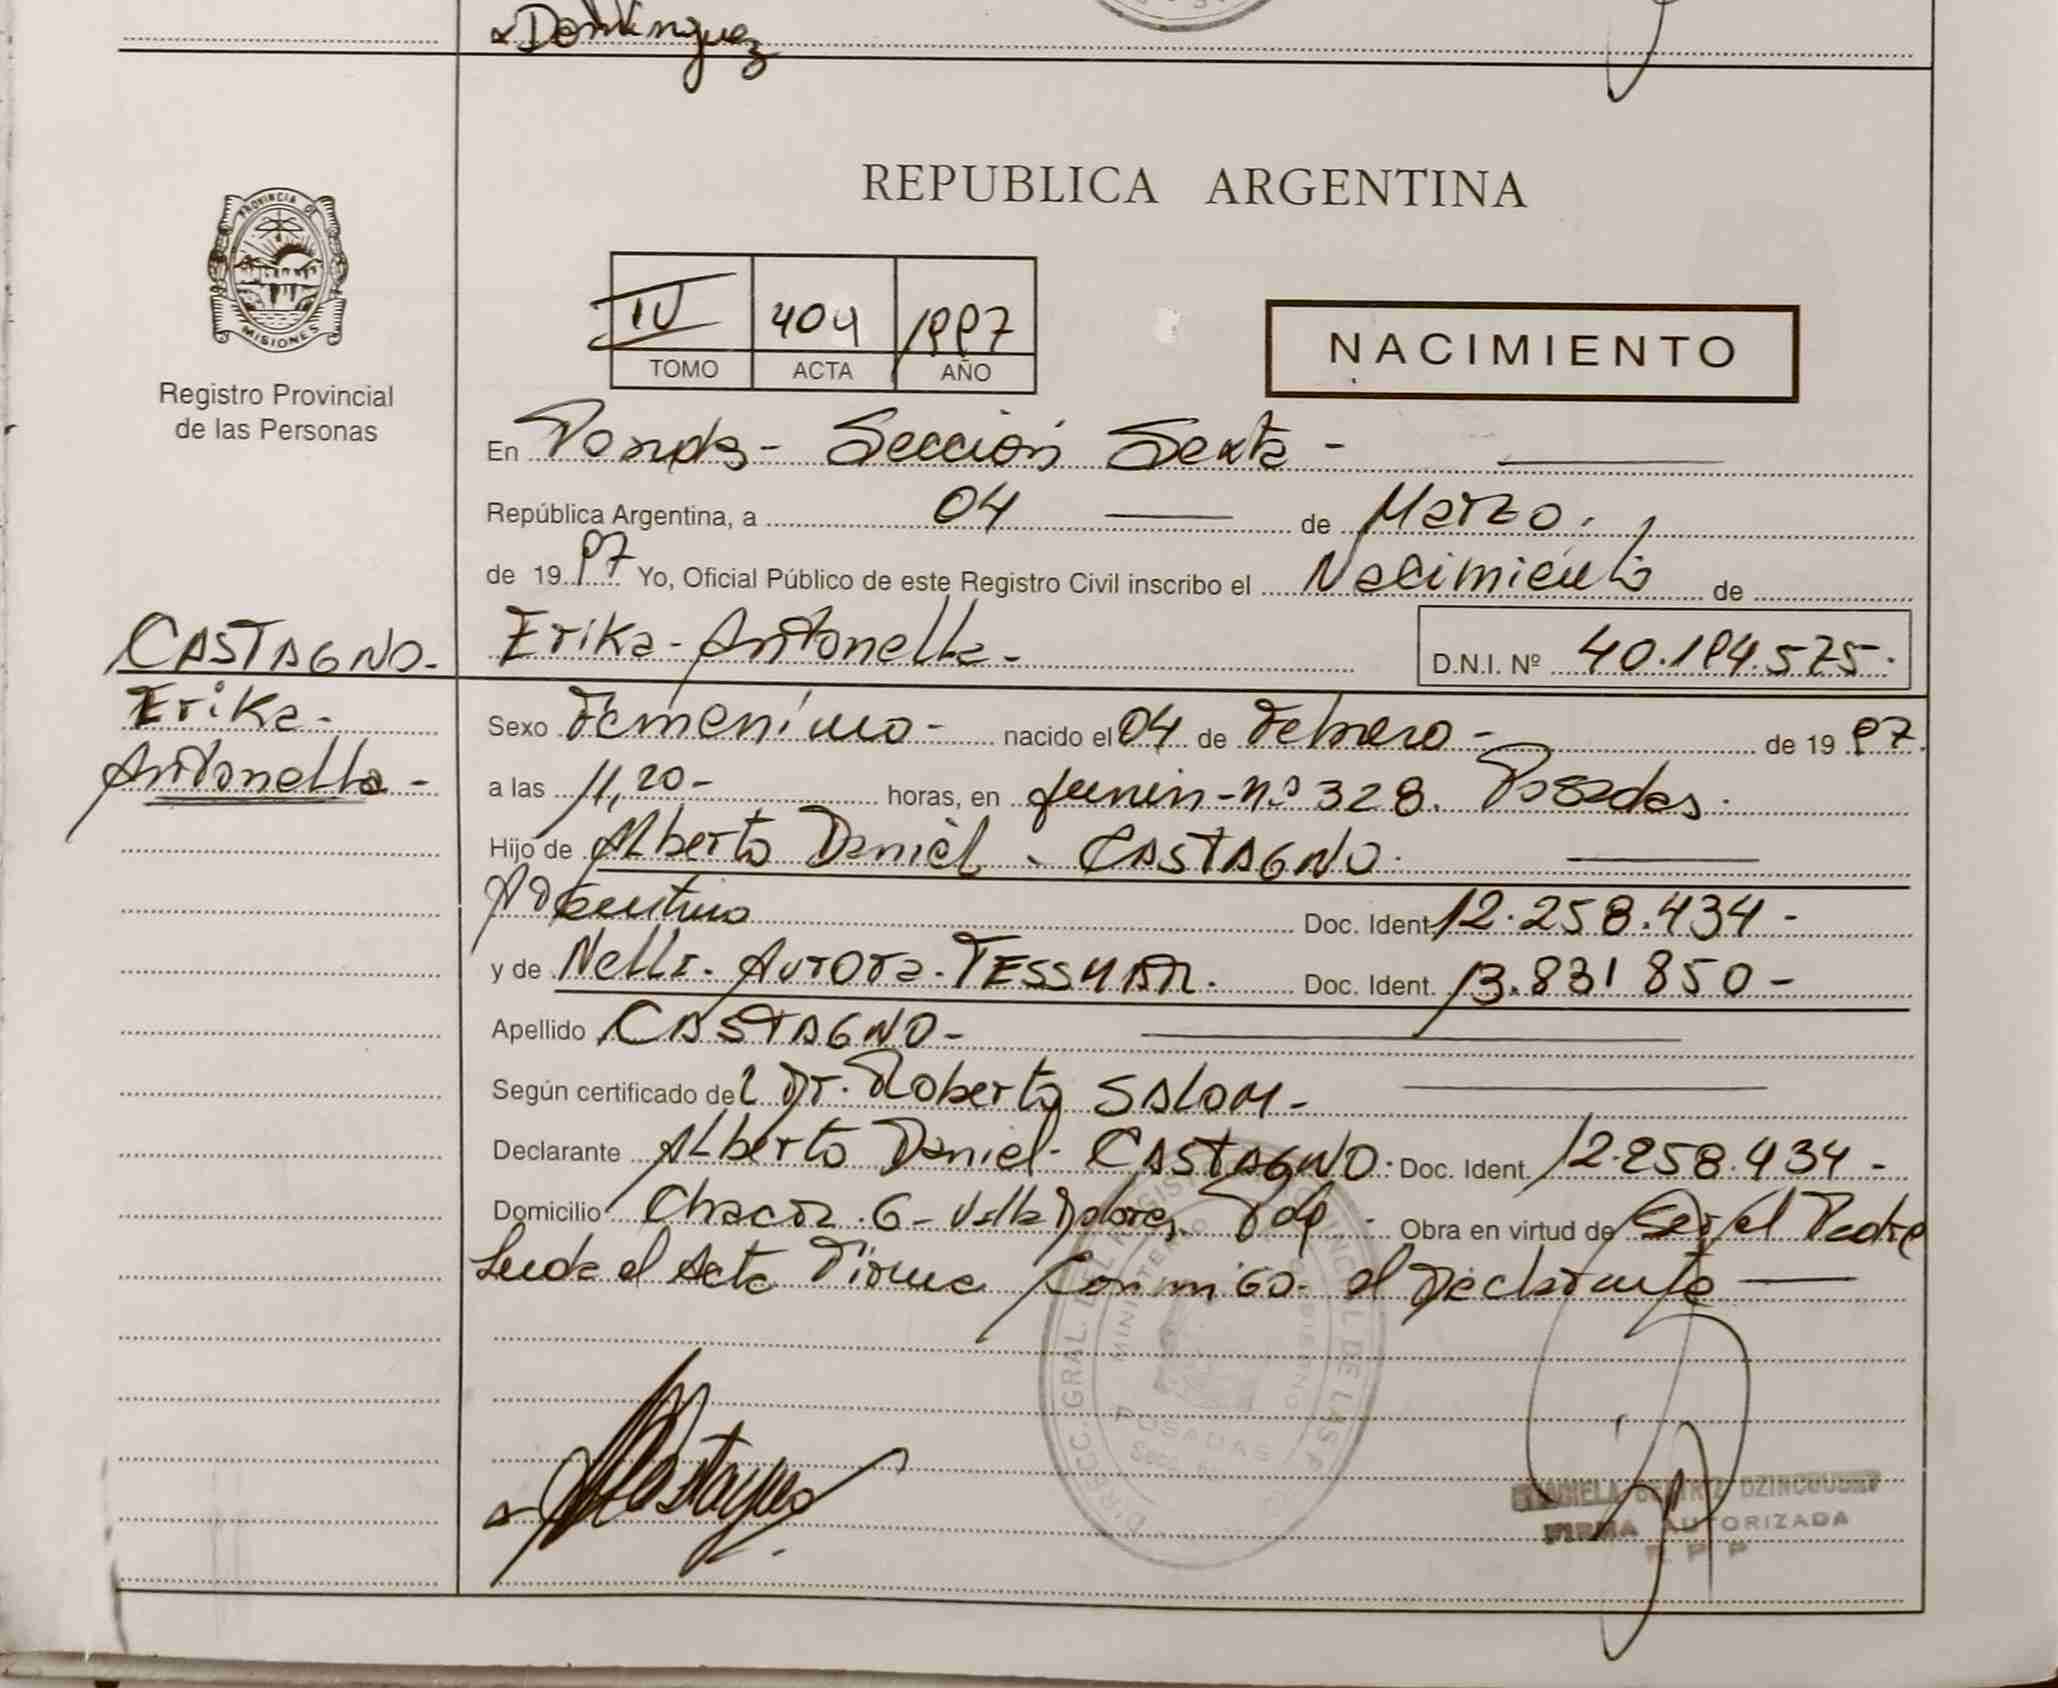 Dominguez
PROVINCIA DE
MISIONES
Registro Provincial
de las Personas
REPUBLICA ARGENTINA
IV 404 1997
TOMO ACTA AÑO
NACIMIENTO
En Posadas - Sección Sexta -
República Argentina, a 04 de Marzo.
de 1997 Yo, Oficial Público de este Registro Civil inscribo el Nacimiento de
CASTAGNO-
Erika-
Antonella-
Erika-Antonella- D.N.I. Nº 40.194.575.
Sexo Femenino- nacido el 04 de Febrero- de 1997.
a las 11,20- horas, en Junin-nº 328. Posadas.
Hijo de Alberto Daniel - CASTAGNO.
Argentino Doc. Ident. 12.258.434-
y de Nelli- Aurora- TESSMAR. Doc. Ident. 13.831 850-
Apellido CASTAGNO-
Según certificado del Dr. Roberto SALOM-
Declarante Alberto Daniel- CASTAGNO. Doc. Ident. 12.258.434-
Domicilio Chacra. 6- Villa Dolores. - Obra en virtud de Ser el Padre
Leida el Acta Firma Conmigo- el Declarante
DIRECC. GRAL. DEL REGISTRO PROVINCIAL DE LAS P
MINISTERIO GOBIERNO
POSADAS
Castagno
BEATRIZ
FIRMA AUTORIZADA
R P P